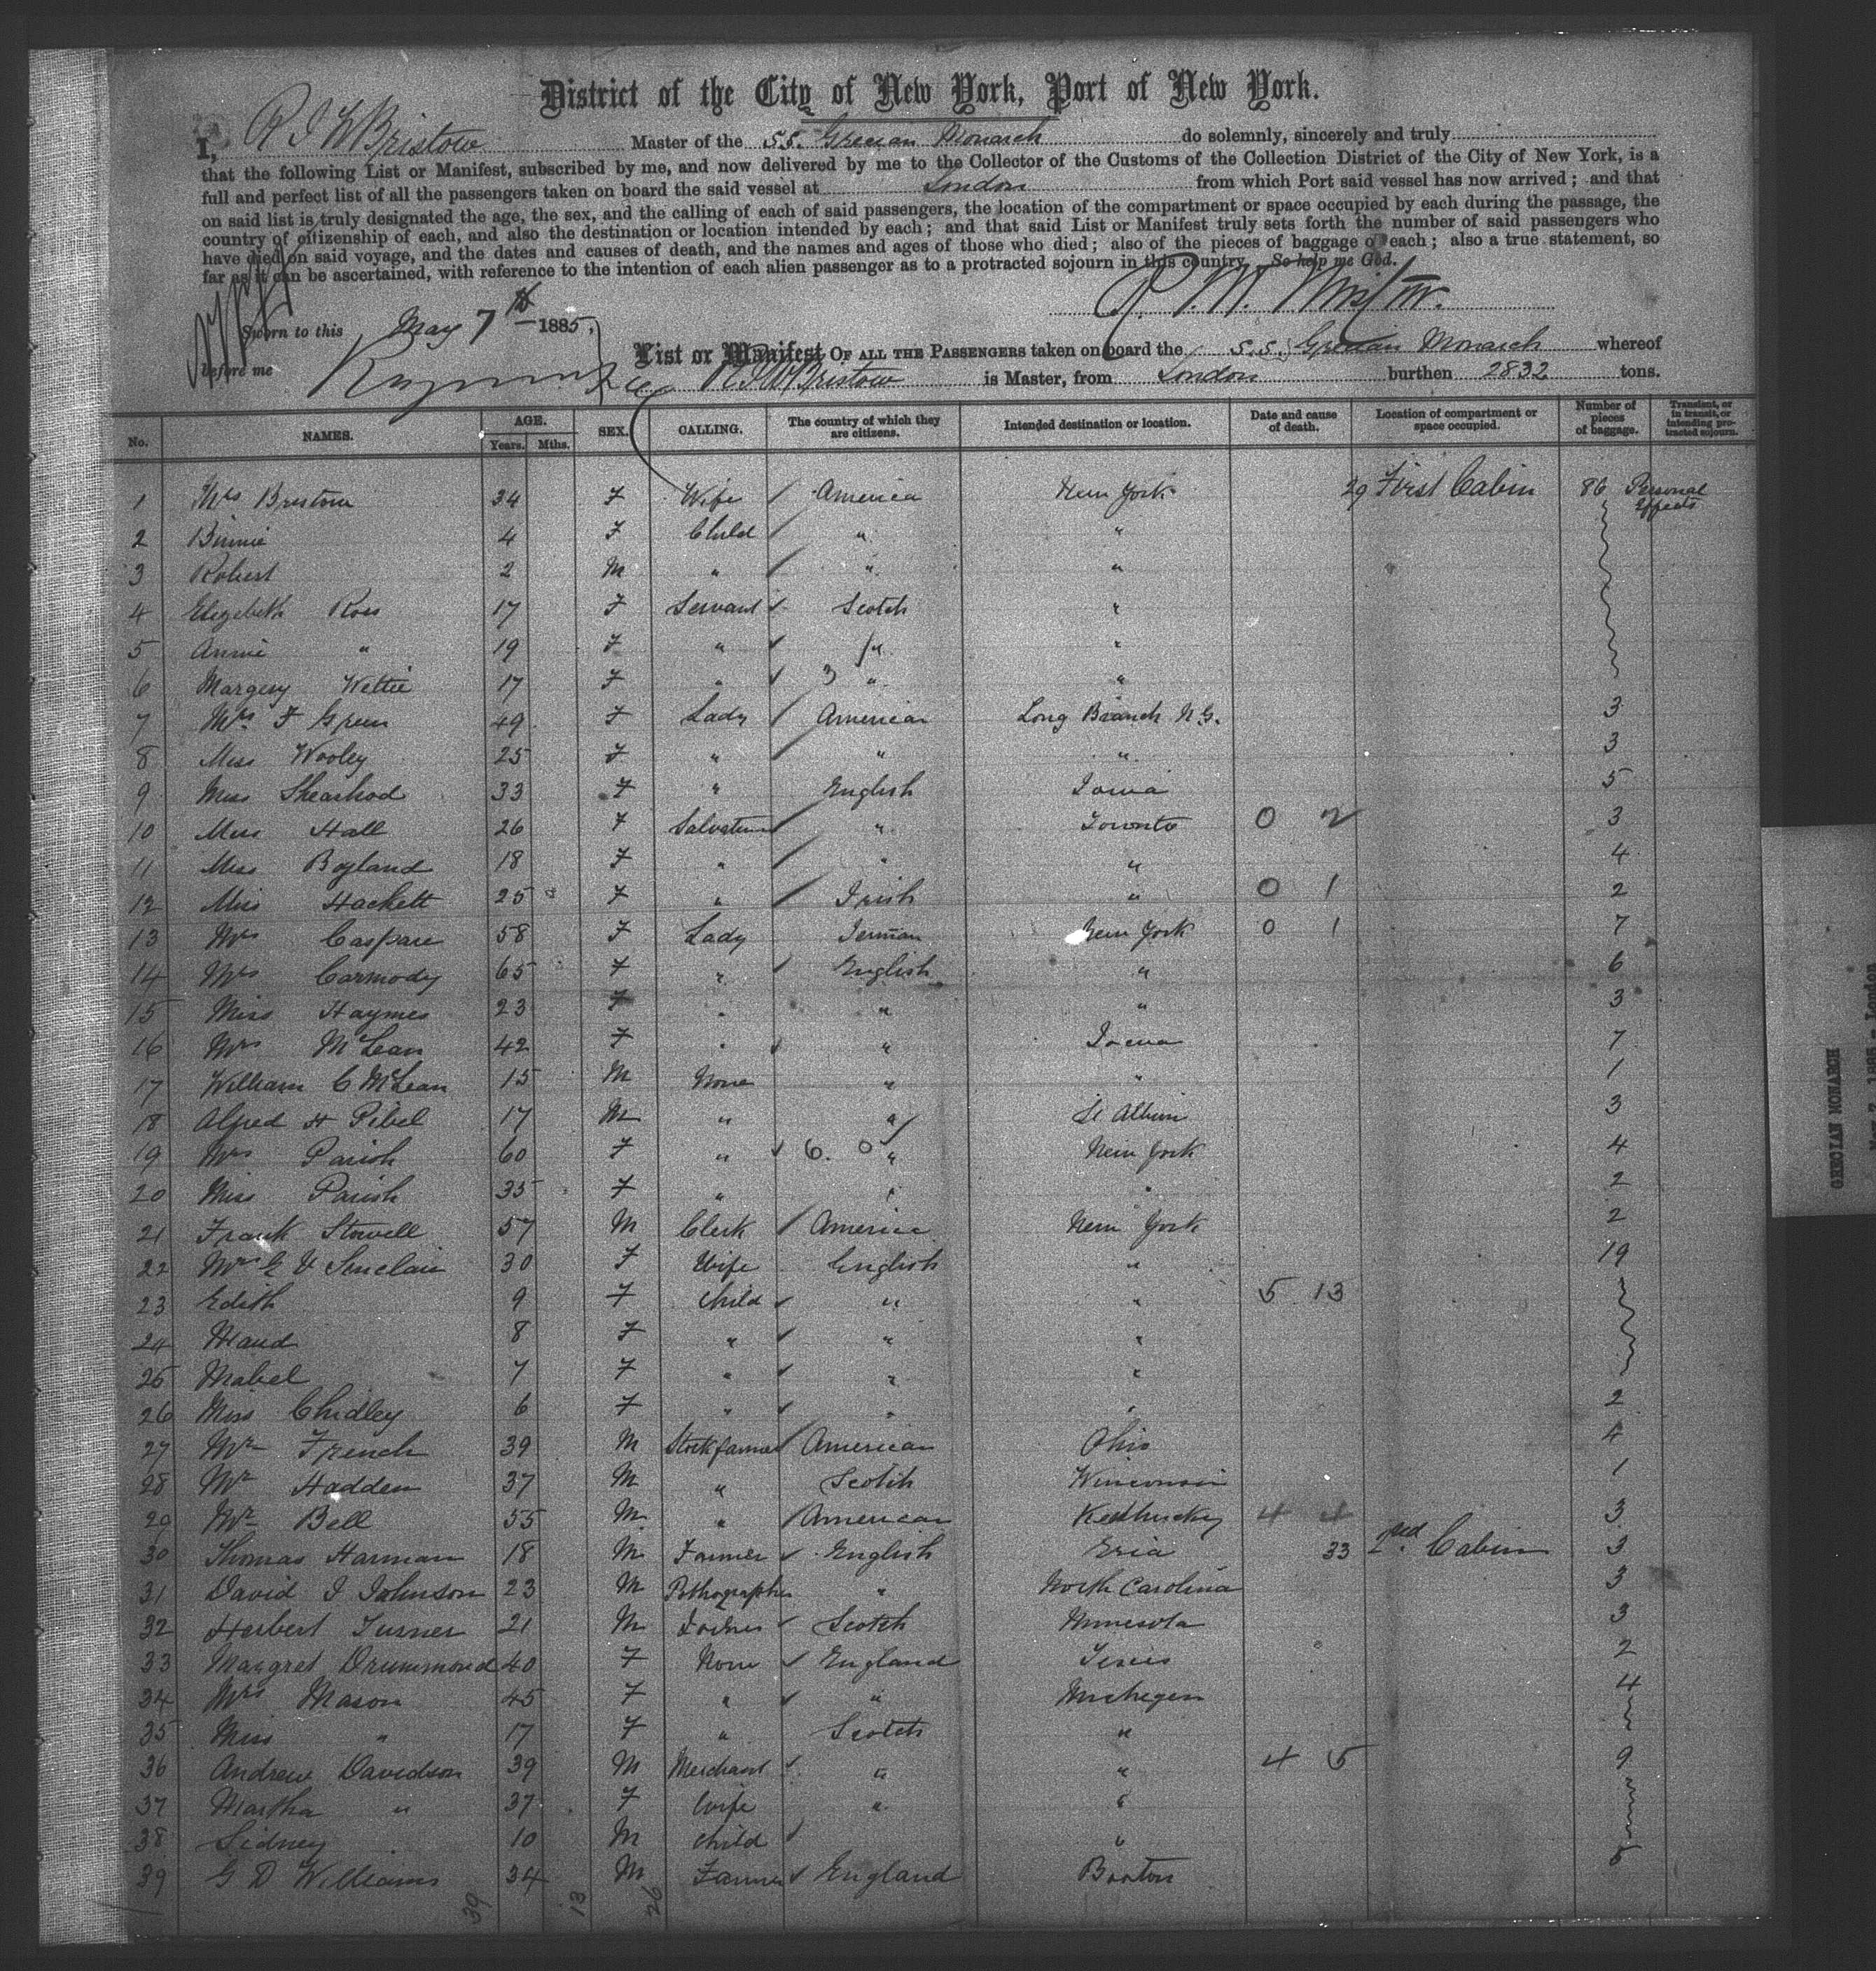 District of the City of New York, Port of New York.
I, R J W Bristow Master of the S.S. Grecian Monarch do solemnly, sincerely and truly
that the following List or Manifest, subscribed by me, and now delivered by me to the Collector of the Customs of the Collection District of the City of New York, is a
full and perfect list of all the passengers taken on board the said vessel at London from which Port said vessel has now arrived; and that
on said list is truly designated the age, the sex, and the calling of each of said passengers, the location of the compartment or space occupied by each during the passage, the
country of citizenship of each, and also the destination or location intended by each; and that said List or Manifest truly sets forth the number of said passengers who
have died on said voyage, and the dates and causes of death, and the names and ages of those who died; also of the pieces of baggage of each; also a true statement, so
far as it can be ascertained, with reference to the intention of each alien passenger as to a protracted sojourn in this country. So help me God.
Sworn to this May 7th 1885,
before me
List or Manifest OF ALL THE PASSENGERS taken on board the S.S. Grecian Monarch whereof
R J W Bristow is Master, from London burthen 2832 tons.
No. NAMES. AGE. Years. Mths. SEX. CALLING. The country of which they are citizens. Intended destination or location. Date and cause of death. Location of compartment or space occupied. Number of pieces of baggage. Transient, or in transit, or intending protracted sojourn.
1 Mrs Bristow 34 F Wife America New York 29 First Cabin 86 Personal Effects
2 Binnie 4 F Child " "
3 Robert 2 M " " "
4 Elizebeth Ross 17 F Servant Scotch "
5 Annie " 19 F " " "
6 Margery Wettie 17 F " 3 " "
7 Mrs F Green 49 F Lady American Long Branch N.G. 3
8 Miss Wooley 25 F " " " 3
9 Miss Shearhod 33 F " English Iowa 5
10 Miss Hall 26 F " Toronto 0 2 3
11 Miss Boyland 18 F " " " 4
12 Miss Hackett 25 F " Irish " 0 1 2
13 Mrs Caspare 58 F Lady German New York 0 1 7
14 Mrs Carmody 65 F " English " 6
15 Miss Haymes 23 F " " " 3
16 Mrs McLean 42 F " " Iowa 7
17 William C McLean 15 M None " " 1
18 Alfred H Pibel 17 M " " St Albun 3
19 Mrs Parish 60 F " 6. 0 " New York 4
20 Miss Parish 35 F " " " 2
21 Frank Stowell 57 M Clerk America New York 2
22 Mrs G V Sinclair 30 F Wife English " 19
23 Edith 9 F Child " " 5 13
24 Maud 8 F " " "
25 Mabel 7 F " " "
26 Miss Chidley 6 F " " " 2
27 Mr French 39 M Stockfarmer American Ohio 4
28 Mr Hadden 37 M " Scotch Winconsin 1
29 Mr Bell 55 M " American Kenthucky 4 4 3
30 Thomas Harman 18 M Farmer English Eria 33 2nd Cabin 3
31 David I Johnson 23 M " North Carolina 3
32 Herbert Turner 21 M Scotch Minnesota 3
33 Margret Drummond 40 F None England 2
34 Mrs Mason 45 F " " Michegen 4
35 Miss " 17 F " Scotch "
36 Andrew Davidson 39 M Merchant " " 4 5 9
37 Martha " 37 F Wife " "
38 Sidney 10 M Child "
39 G D Williams 34 M Farmer England Boston 5
39 13 26
GRECIAN MONARCH
MAY 7, 1885 - London